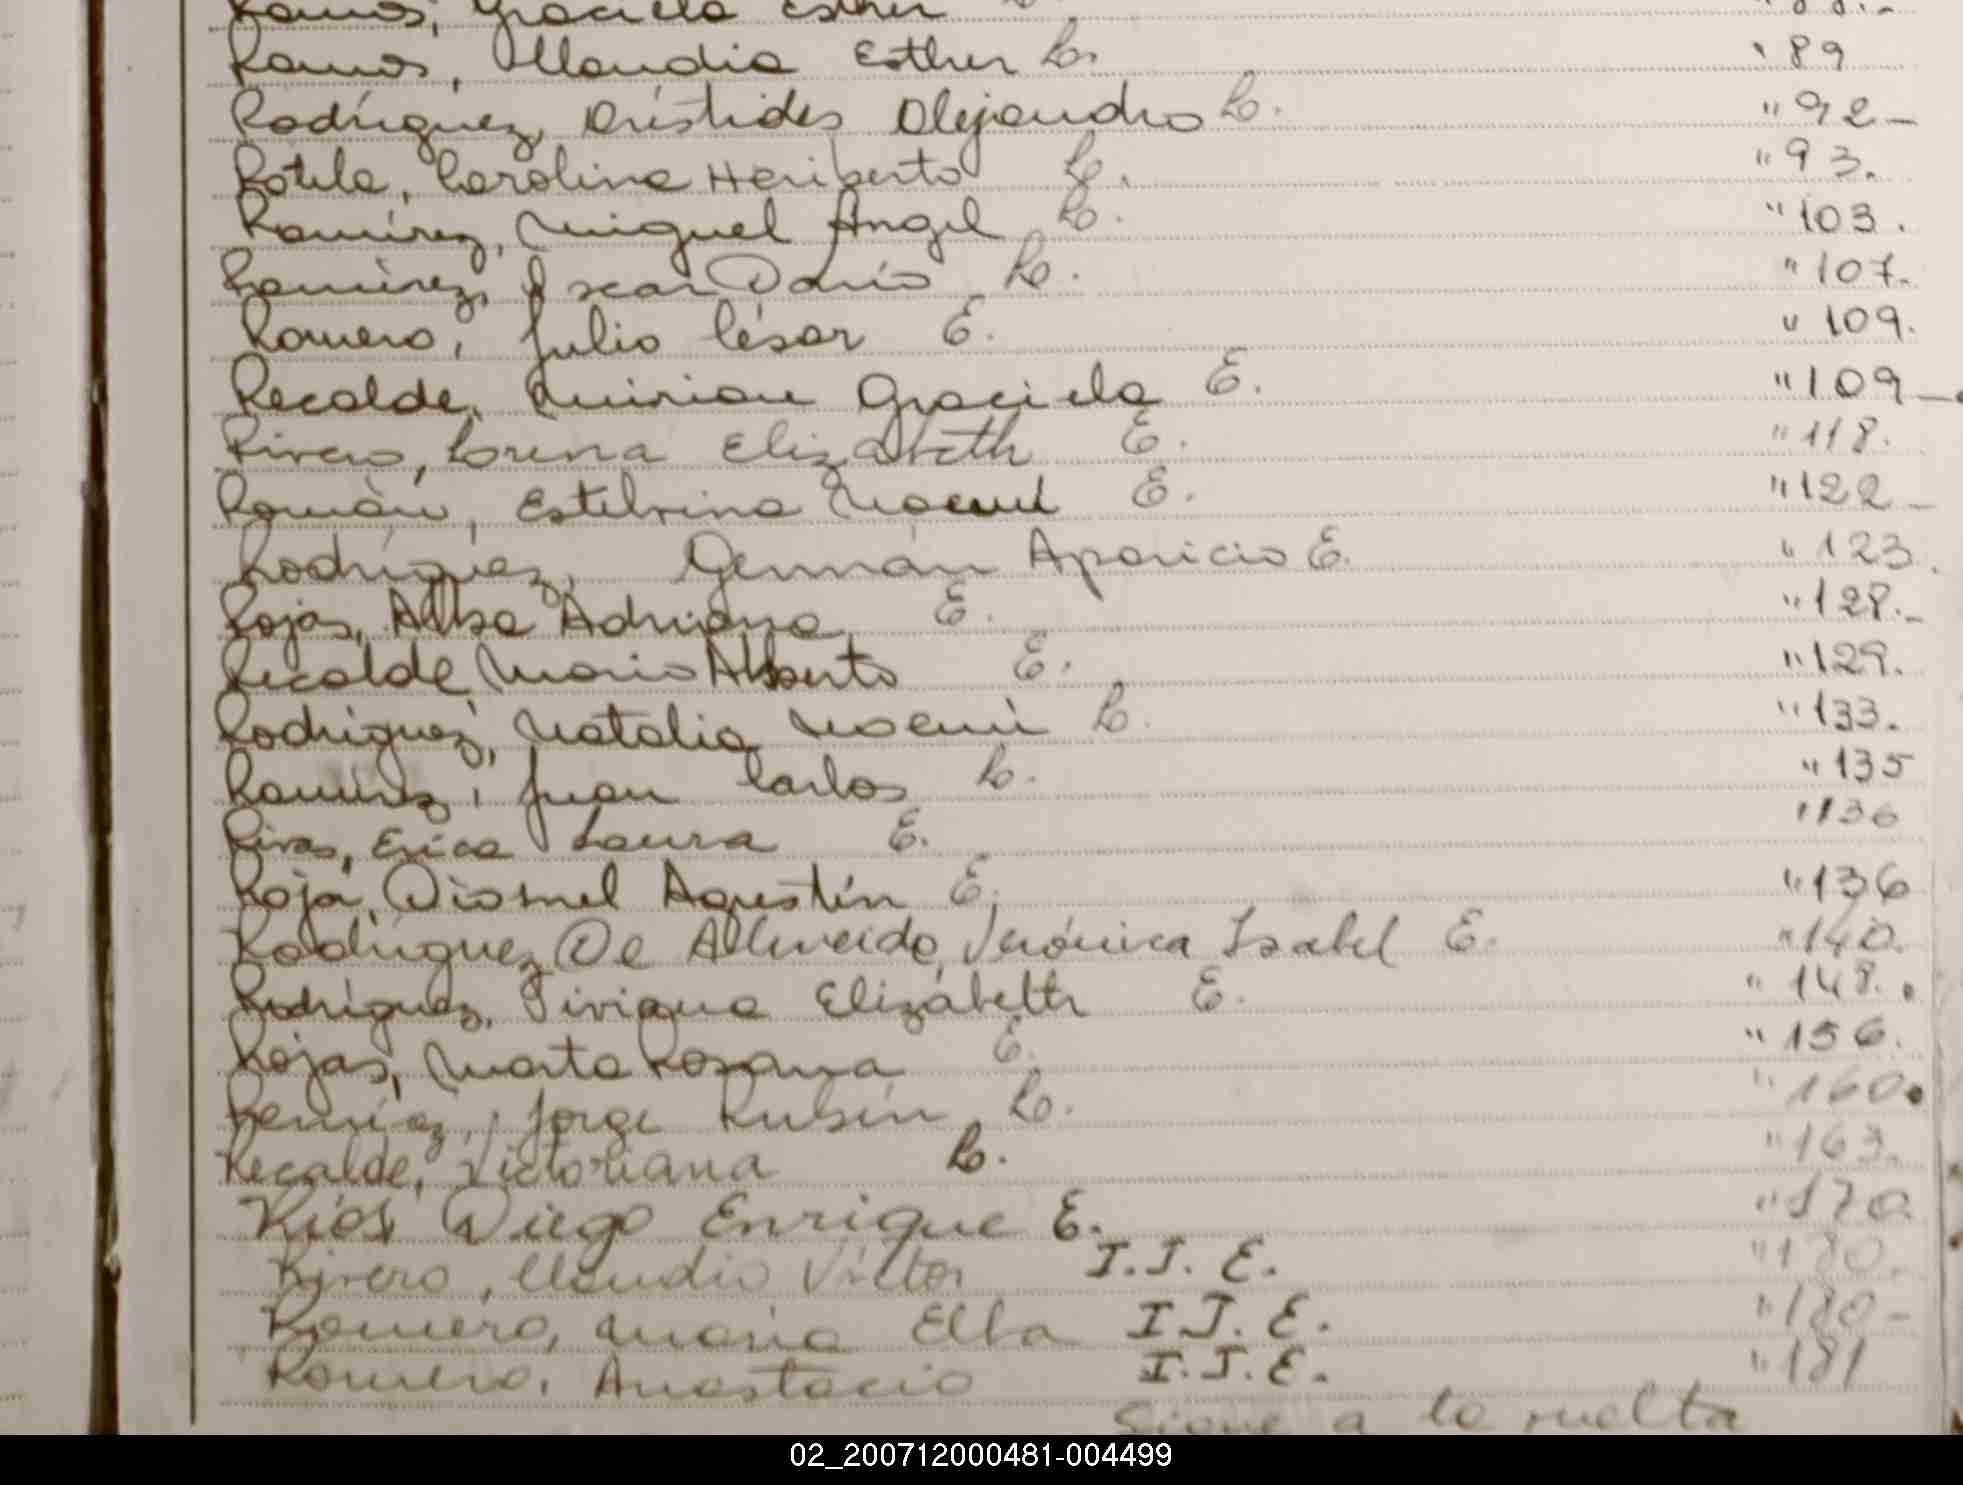 Ramos, Graciela Esther
Ramos, Claudia Esther L. " 89
Rodríguez, Arístides Alejandro L. " 92 -
Rotela, Carolina Heriberto L. " 93.
Ramírez, Miguel Angel L. " 103.
Ramírez, Oscar Darío L. " 107.
Romero, Julio César E. " 109.
Recalde, Mirian Graciela E. " 109 -
Rivero, Lorena Elizabeth E. " 118.
Román, Estelvina Noemí E. " 122 -
Rodríguez, Germán Aparicio E. " 123.
Rojas, Alba Adriana E. " 128.-
Recalde Mario Alberto E. " 129.
Rodríguez, Natalia Noemí L. " 133.
Ramírez, Juan Carlos L. " 135
Rivas, Erica Laura E. " 136
Roja, Diosnel Agustín E. " 136
Rodríguez De Almeida, Verónica Isabel E. " 140.
Rodríguez, Viviana Elizabeth E. " 148.
Rojas, Marta Rosana E. " 156.
Jorge Rubén L. " 160.
Recalde, Victoriana L. " 163.
Ríos, Diego Enrique E. " 170.
Rivero, Claudio Víctor I.J.E. " 180.
Romero, María Elba I J. E. " 180 -
Romero, Anastacio I.J.E. " 181
Sigue a la vuelta
02_200712000481-004499